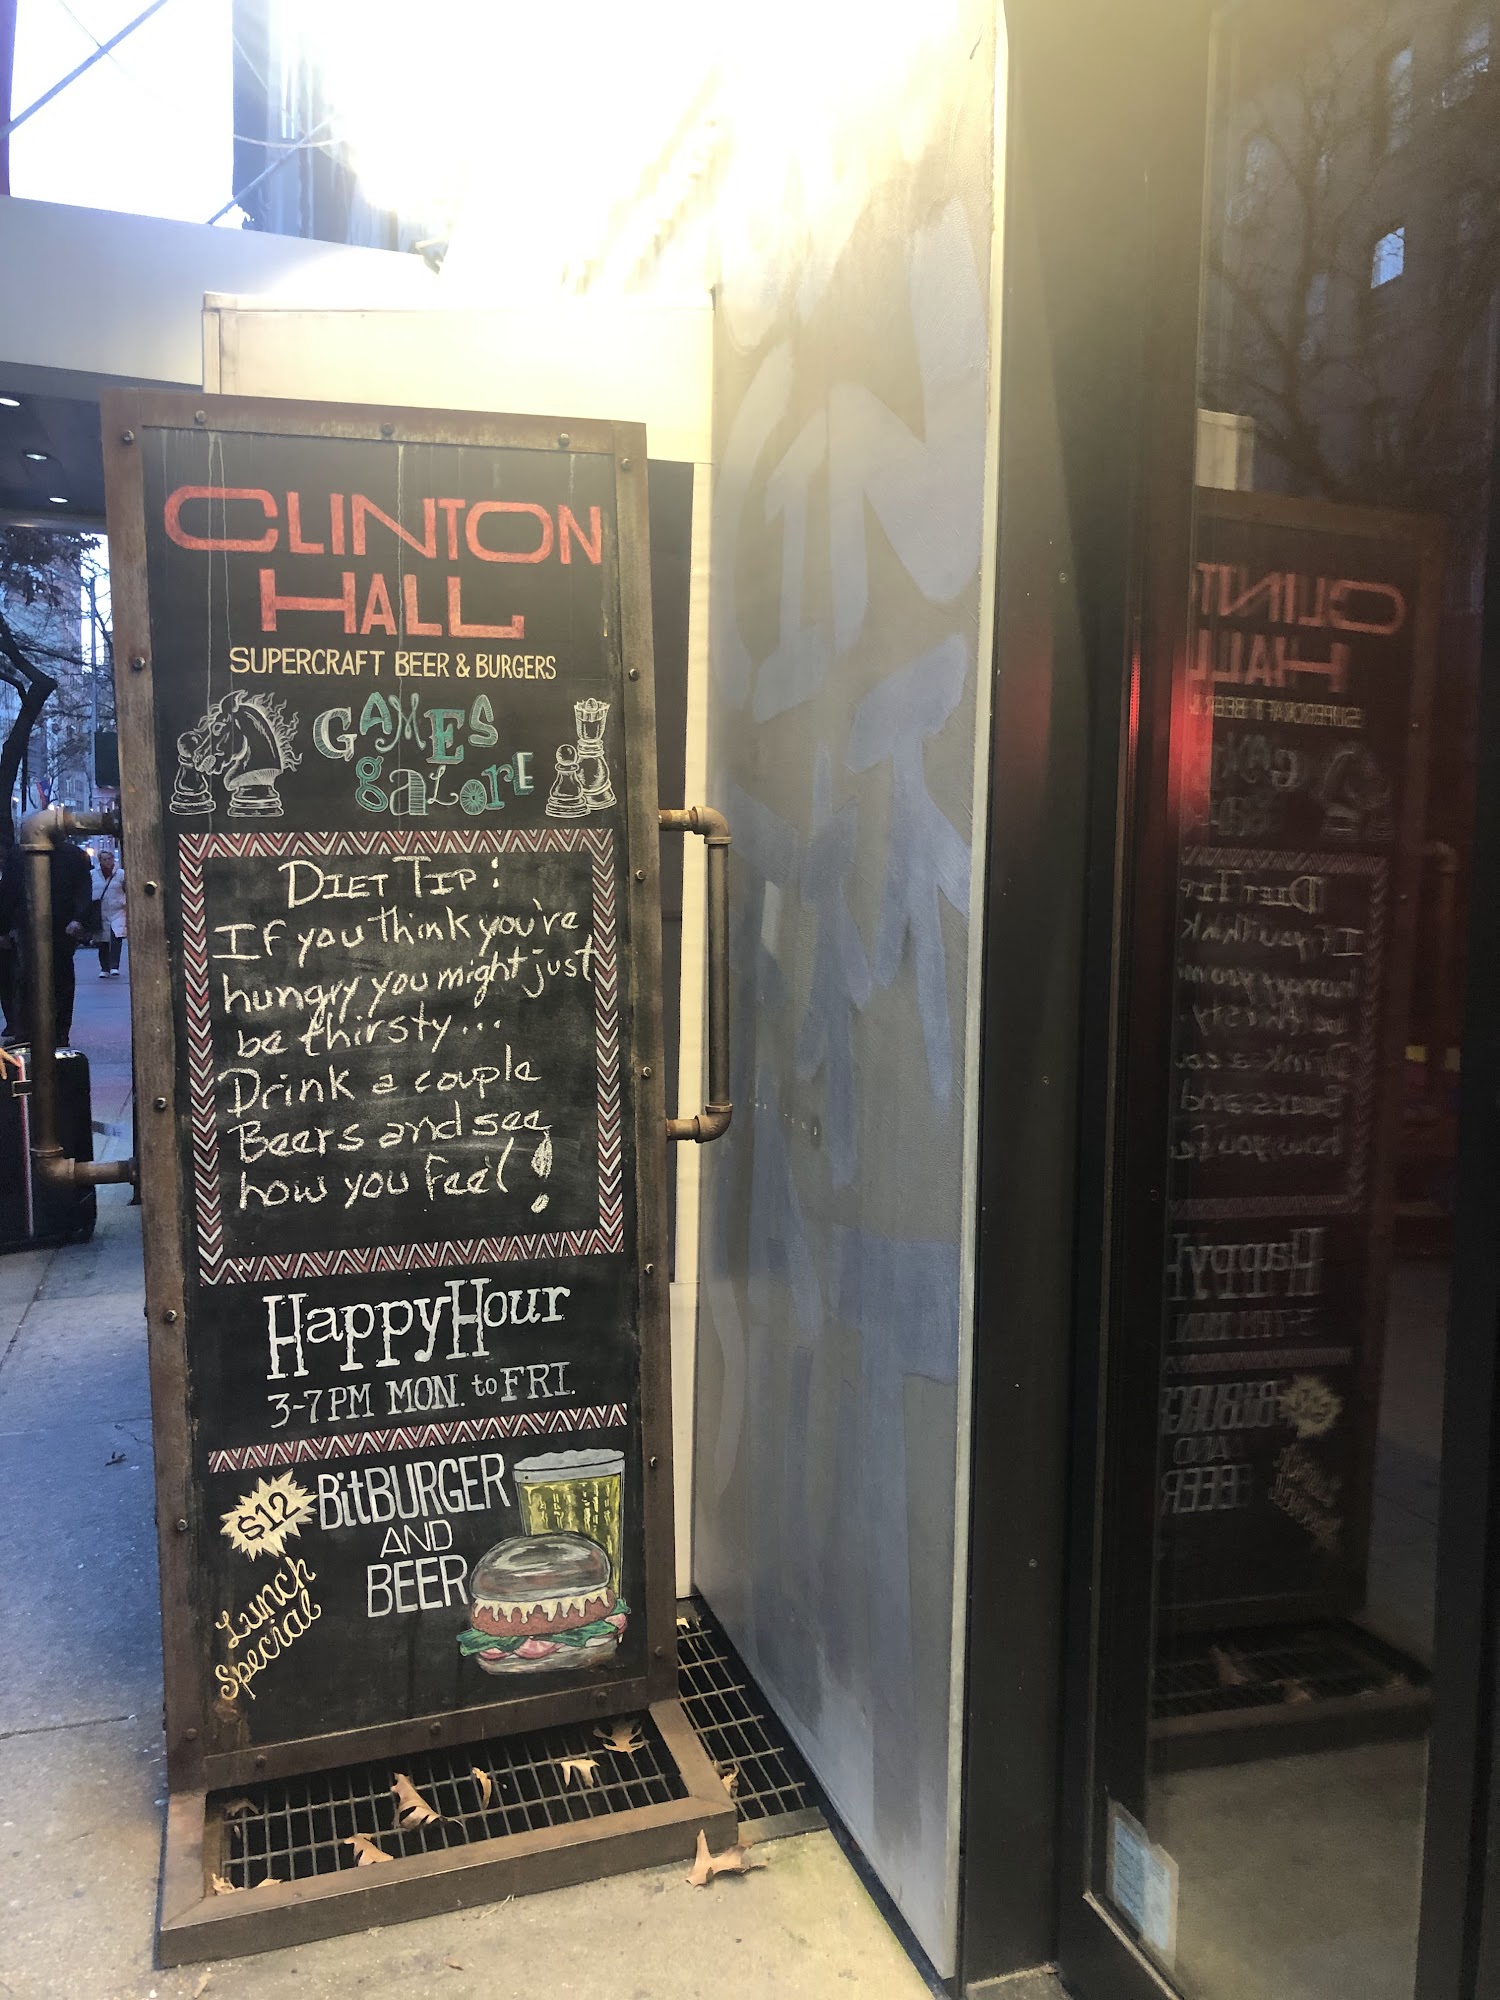 CLINTON
HALL
SUPERCRAFT BEER & BURGERS
GAMES
GALORE
DIET TIP:
If you think you've
hungry you might just
be thirsty...
Drink a couple
Beers and see
how you feel!
HappyHour
3-7PM MON. to FRI.
$12
BitBURGER
AND
BEER
Lunch
Special